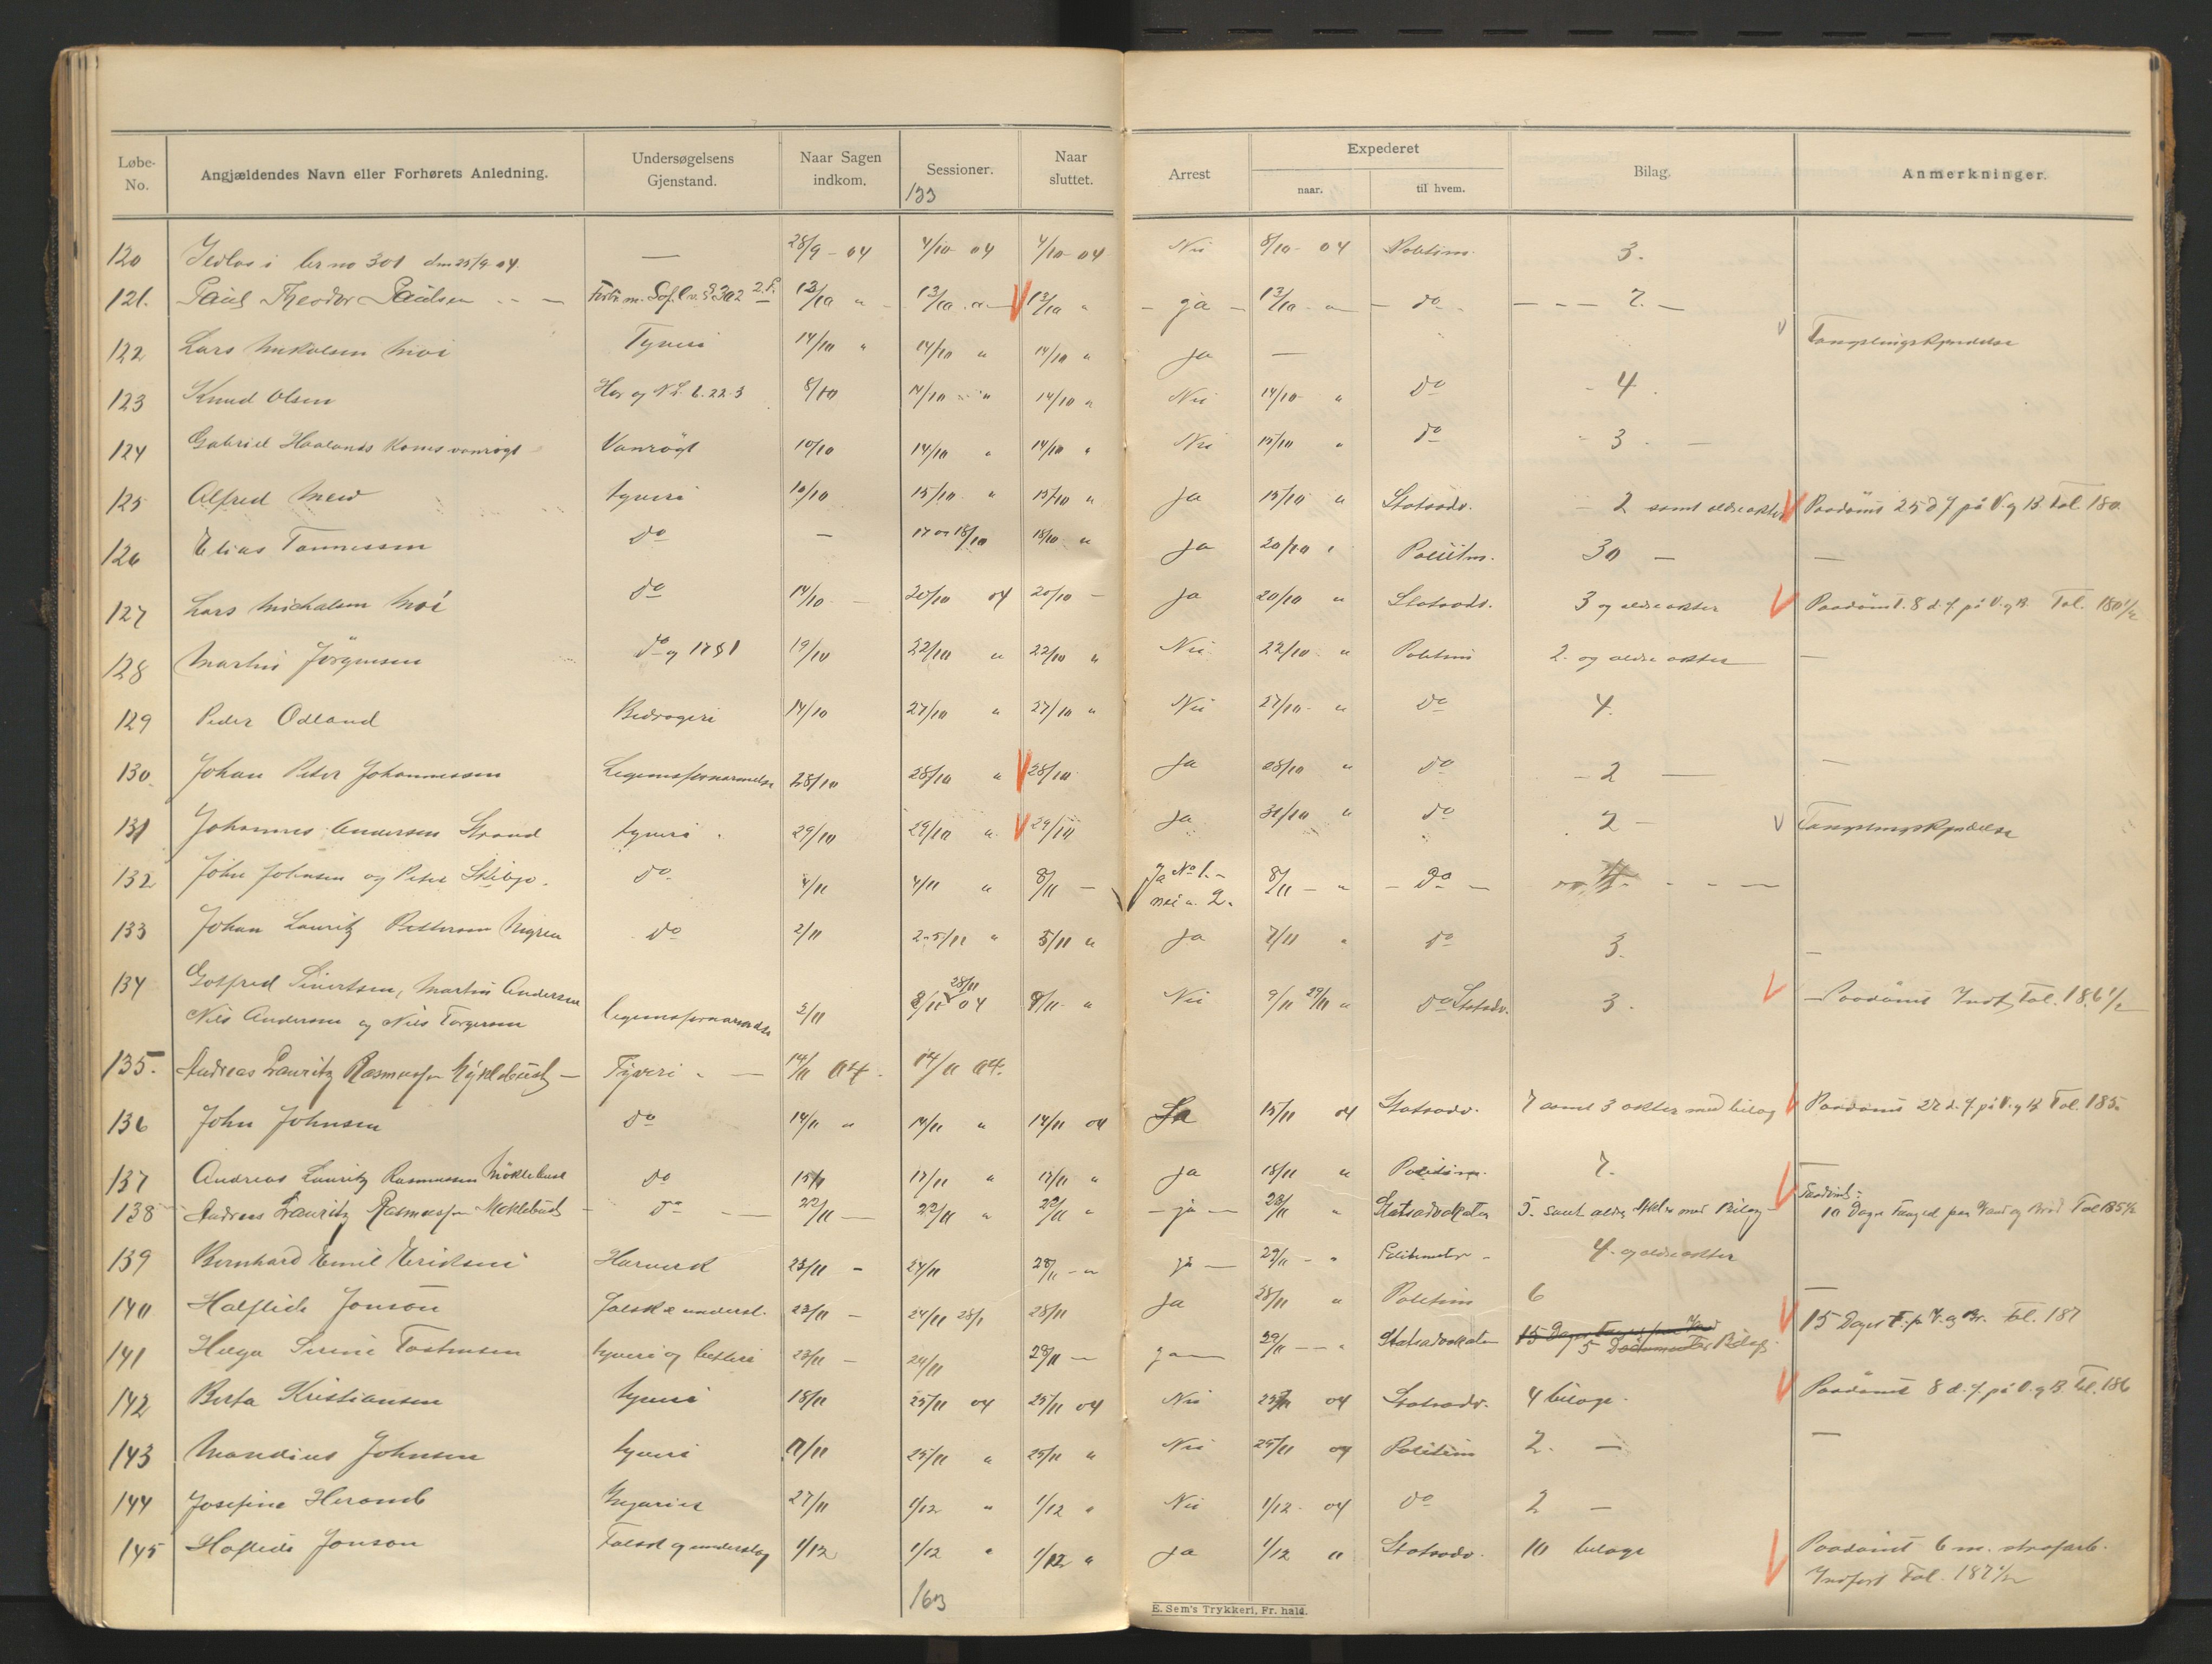 Løbe-No. Angjældendes Navn eller Forhørets Anledning. Undersøgelsens Gjenstand. Naar Sagen indkom. Sessioner. Naar sluttet. Arrest Expederet naar. til hvem. Bilag. Anmerkninger.
133
120 Ildlos i br no 301 den 25/9 04. — 28/9 - 04 4/10 04 4/10 04 Nei 8/10 - 04 Politim. 3.
121. Paul Theodor Paulsen 13/10 " 13/10 13/10 " ja 13/10 do 7.
122 Lars Moi Tyveri 14/10 " 14/10 " 14/10 " Ja —
123 Knud Olsen Hær og NL 6.22.3 8/10 14/10 " 14/10 " Nei 14/10 " do 4.
124 Gabriel Haalands Kones vanrögt Vanrögt 10/10 14/10 " 14/10 " Nei 15/10 " do 3 —
125 Alfred tyveri 10/10 15/10 " 15/10 " Ja 15/10 " Statsadv. 2 samt ældre akter Paadömt 25 d F på V. og B. Fol. 180
126 Elias Tönnessen do — 17 og 18/10 18/10 " Ja 20/10 " Politm. 30 — —
127 Lars Michalsen Moi do 14/10 20/10 04 20/10 — Ja 20/10 " Statsadv. 3 og ældre akter Paadömt. 8 d. f. på V. og B. Fol. 180 1/2
128 Martin Jörgensen do og 1781 19/10 22/10 " 22/10 " Nei 22/10 " Politim 2. og ældre akter —
129 Peder Odland Bedrageri 14/10 27/10 " 27/10 " Nei 27/10 " do 4.
130 Johan Peter Johannessen Legemsfornærmelse 28/10 28/10 " 28/10 Ja 28/10 " do 2 — —
131 Johannes Andersen Strand tyveri 29/10 29/10 " 29/10 Ja 31/10 " do 2 — Fængslingskjendelse
132 John Johnsen og Peter do 4/11 4/11 " 8/11 — Ja No 1. – nei " 2. 8/11 — " do
133 Johan Lauritz Pettersen do 2/11 2-5/11 " 5/11 " Ja 7/11 " do 3. —
134 Gotfred Sivertsen, Martin Andersen
Nils Andersen og Nils Torgersen legemsfornærmelse 3/11 8/11 28/11 04 8/11 " Nei 9/11 29/11 " do Statsadv. 3. Paadömt Indf. Fol. 186 1/2
135. Andreas Lauritz Rasmussen Myklebust — Tyveri 14/11 04. 14/11 04.
136 John Johnsen do 14/11 " 14/11 " 14/11 04 Ja 15/11 04 Statsadv. 7 samt 3 akter med bilag Paadömt 27 d. f. på V. og B. Fol. 185
137 Andreas Lauritz Rasmussen Möklebust do 15/11 17/11 " 17/11 " Ja 18/11 " Politim. 7. —
138 Andreas Lauritz Rasmussen Meklebust do 22/11 22/11 " 22/11 " ja 23/11 " Statsadvokaten 5. samt ældre Akter med Bilag Paadömt: 10 Dages Fængsel paa Vand og Bröd Fol 185 1/2
139 Bernhard Emil Eriksen Hærverk 23/11 - 24/11 28/11 - " ja 29/11 — " Politimester 4. og ældre akter
140 Halflide Jonson falsk & underst. 23/11 - 24/11 28/11 28/11 Ja 28/11 " Politim 6 —
141 Helga Serine Tostensen tyveri og betleri 23/11 - 24/11 28/11 — ja 29/11 — " Statsadvokaten 15 Dages Fængsel paa Vand 5 Dokumenter Bilag. 15 Dages F. p V. og Br. Fol. 187
142 Berta Kristiansen tyveri 18/11 25/11 04 25/11 04 Nei 25/11 04 Statsadv. 4 bilage. Paadömt 8 d. f. på V. og B. Fol. 186
143 Mandius Johnsen tyveri 17/11 25/11 " 25/11 " Nei 25/11 04 Politim 2. — —
144 Josefine Heramb 27/11 1/12 " 1/12 " Nei 1/12 - 04 do 2 —
145 Haflide Jonson Falsk og underslag 1/12 1/12 " 1/12 " Ja 1/12 " Statsadv. 10 bilage Paadömt 6 m. strafarb. Indfört Fol. 187 1/2
163
E. Sem's Trykkeri, Fr. hald.